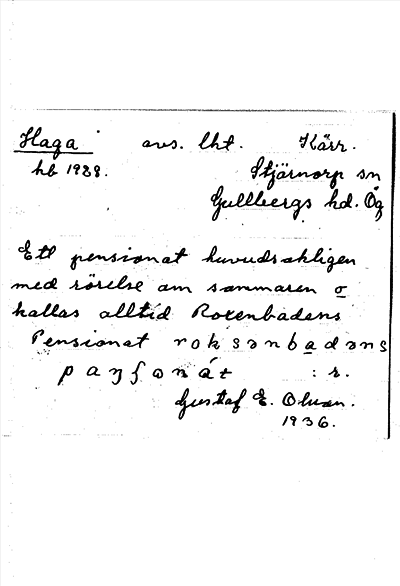 Haga avs. lht. Kärr.
hb 1928. Stjärnorp sn
Gullbergs hd. Ög
Ett pensionat huvudsakligen
med rörelse om sommaren o
kallas alltid Roxenbadens
Pensionat roksənbadəns
paŋʃonát : r.
Gustaf E. Olson.
1936.